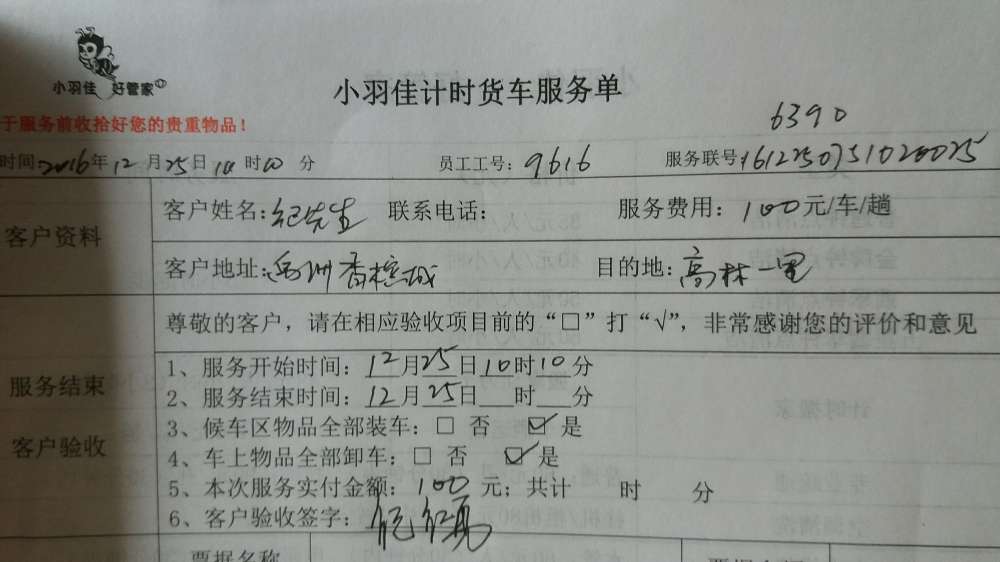 小羽佳 好管家
小羽佳计时货车服务单
于服务前收拾好您的贵重物品！
6390
时间：2016年12月25日10时00分 员工工号：9616 服务联号：1612250751020025
客户资料
客户姓名：纪先生 联系电话： 服务费用：100元/车/趟
客户地址：禹洲香槟城 目的地：高林一里
尊敬的客户，请在相应验收项目前的“□”打“√”，非常感谢您的评价和意见
服务结束
客户验收
1、服务开始时间：12月25日10时10分
2、服务结束时间：12月25日___时___分
3、候车区物品全部装车：□ 否 ☑ 是
4、车上物品全部卸车：□ 否 ☑ 是
5、本次服务实付金额：100 元；共计 时 分
6、客户验收签字：
票据名称